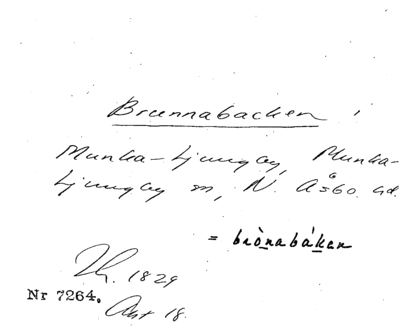 Brunnabacken
Munka-Ljungby, Munka-
Ljungby sn, N. Åsbo hd.
= brònabákan
Th. 1829
Nr 7264. Akt 18.